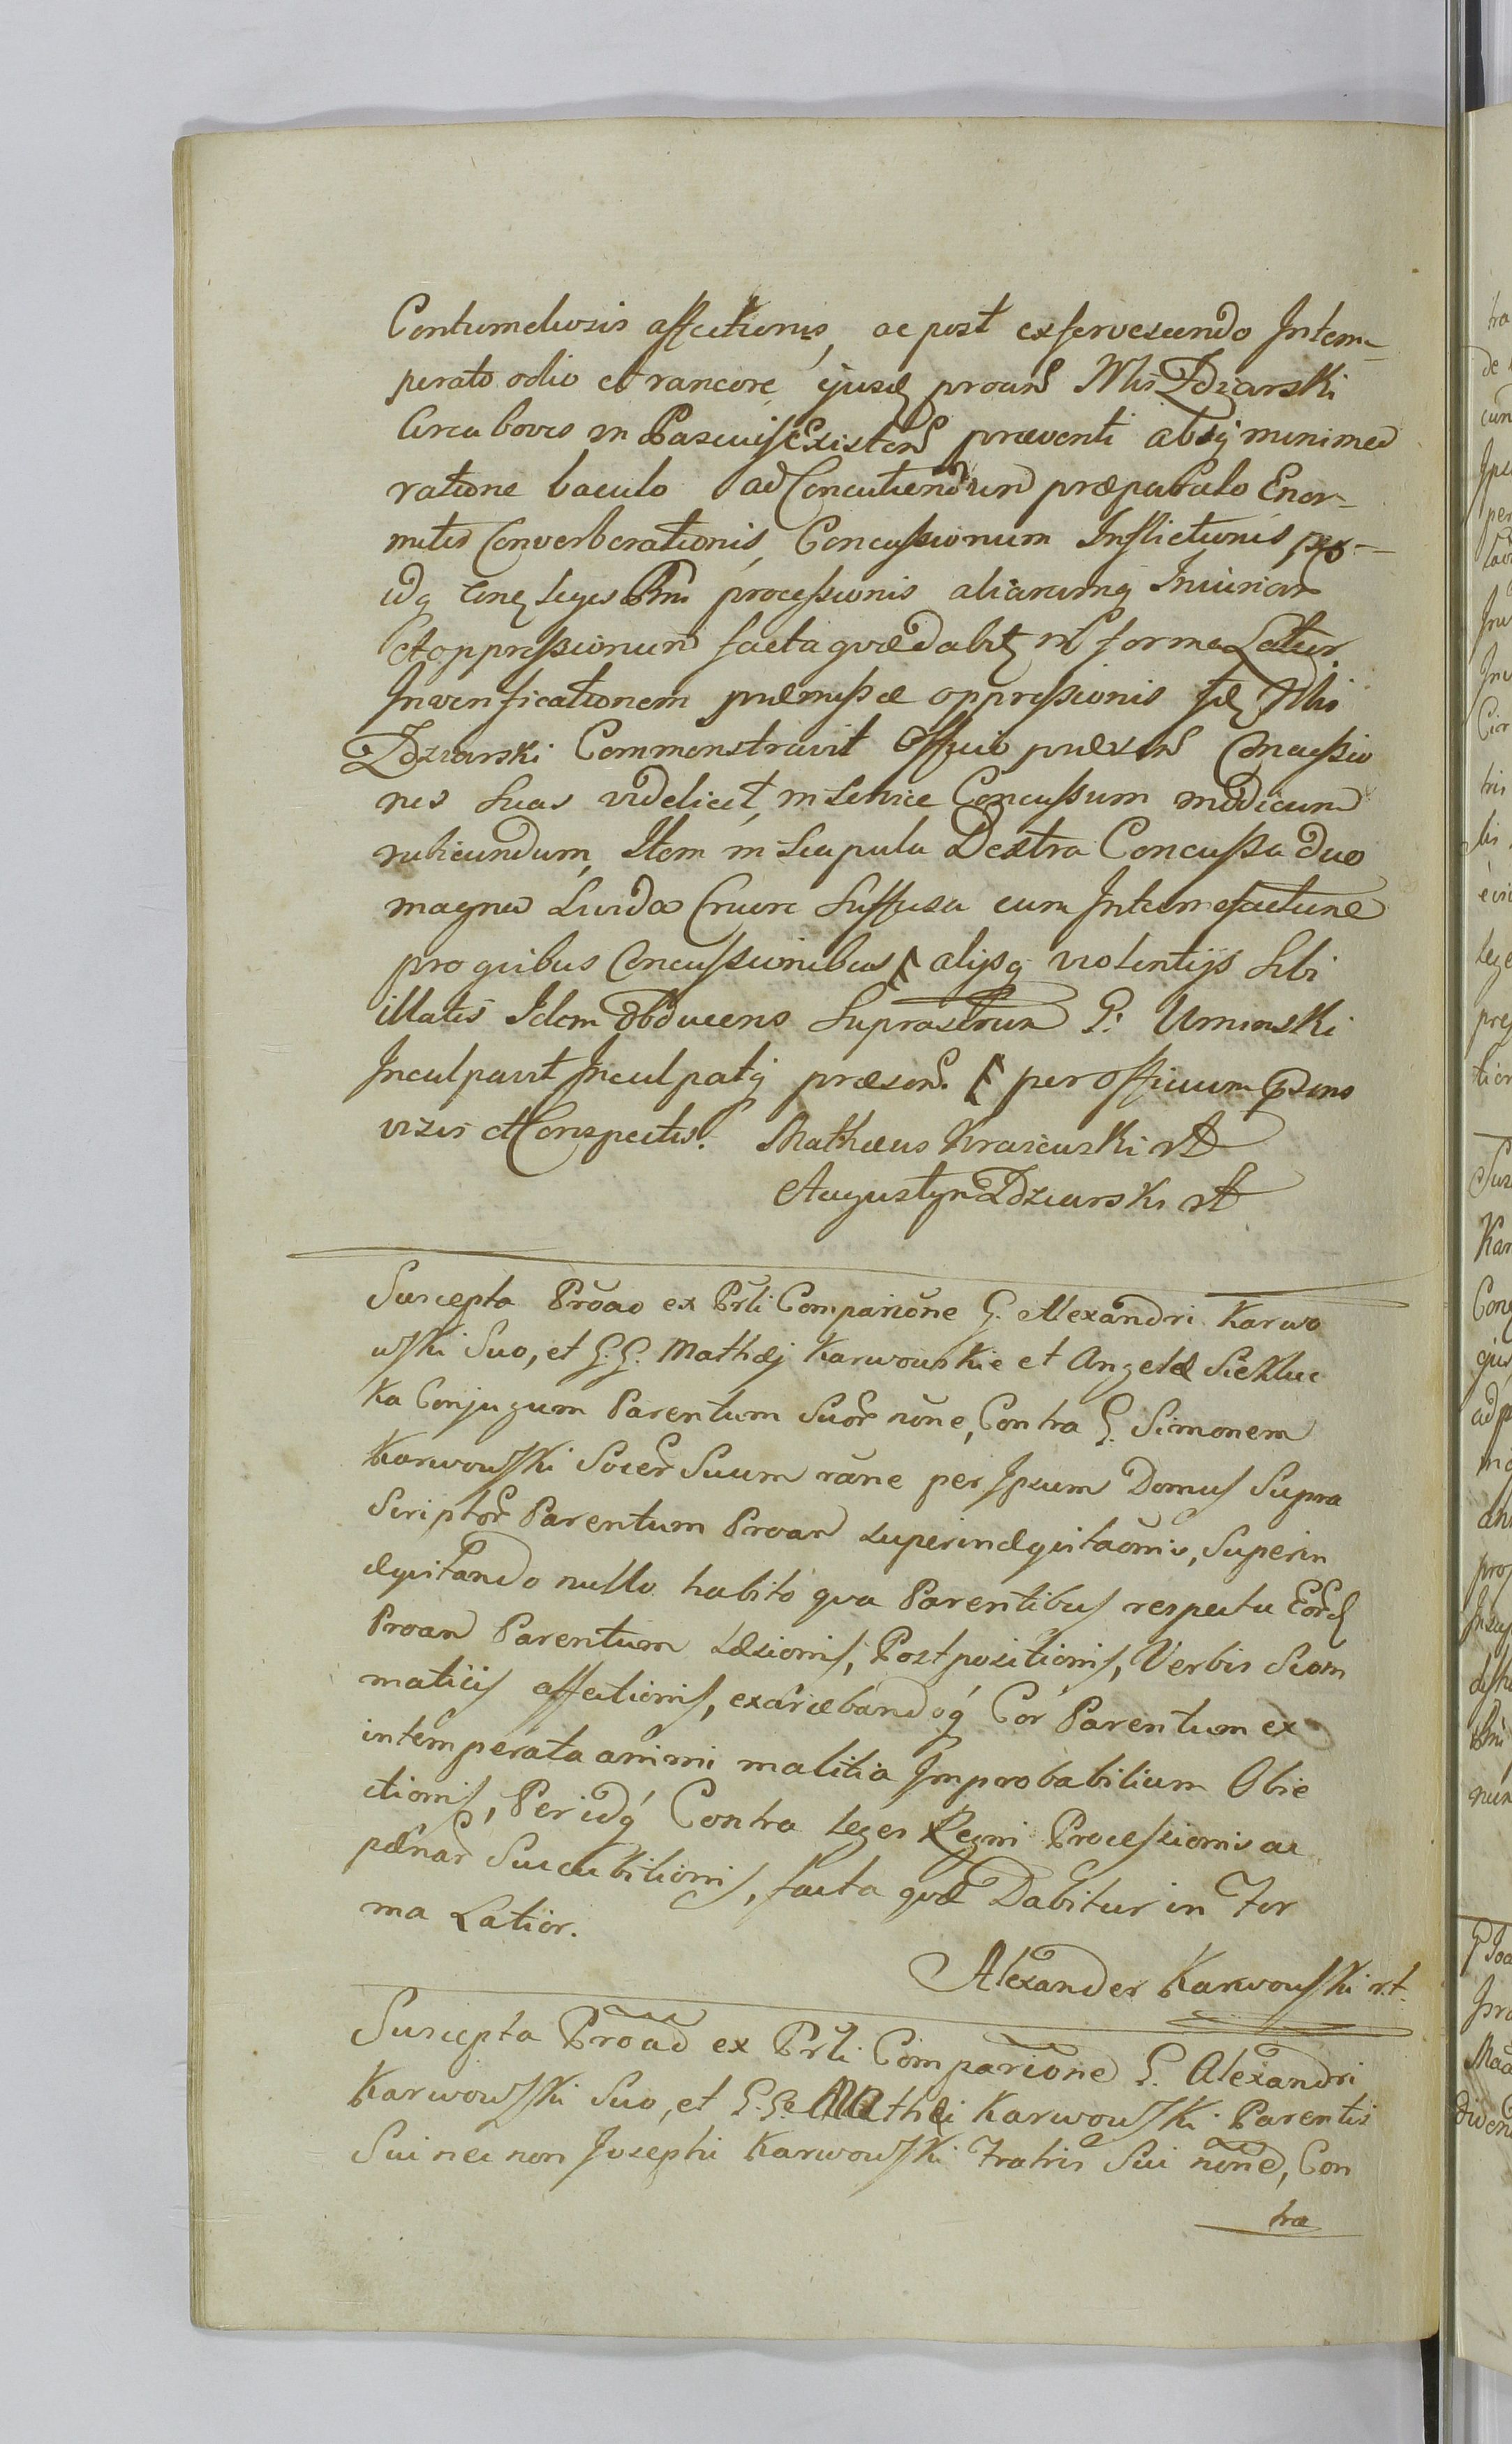 Contumeliosis affectionis, ac post exfervescendo Intem-
perato odio et rancore ejusd proans Mlis Zdziarski
Circa boves in Pascuis Existens praeventi absq minima
ratione baculo ad Concutiendum praeparato Enor-
miter Converberationis, Concussionum Inflictionis, per-
idq leges Rni processionis aliarumq Iniuriar
et oppressionum facta quae dabit in forma Latior.
In verificationem praemissae oppressionis Mlis
Zdziarski Commonstravit Officio praesens Concussio
nes suas videlicet, in Concussum modicum
rubicundum, Item in Scapula Dextra Concussa duo
magna Livida Cruore Suffusa cum Intumefactione
pro quibus Concussionibus alijsq violentijs Sibi
illatis Idem obducens Suprascrum G. Uminski
Inculpavit Inculpatq praesens. per Officium
vizis et Conspectis. Mathaeus Krasieuski
Augustyn Zdziarski
Suscepta Proao ex Prli Comparione G. Alexandri Karwo
wski Suo, et G.G. Mathaej Karwowskie et Angelae Siekluc
ka Conjugum Parentum Suor none, Contra G. Simonem
Karwowski Socer Suum rane per Ipsum Domus Supra
Scriptor Parentum Proan superinaequitaonis, Superin
aequitando nullo habito qua Parentibus respectu Eord
Proan Parentum Laesionis, Postpositionis, Verbis Scom
maticis affectionis, exacaebandoq Cor Parentum ex
intemperata animi malitia Improbabilium Obie
ctionis, Per idq Contra leges Regni Processionis ac
paenar Succubitionis, facta quae Dabitur in For
ma Latior.
Alexander Karwowski
Suscepta Proao ex Prli Comparione G. Alexandri
Karwowski Suo, et G.G. Mathaei Karwowski Parentis
Sui nec non Josephi Karwowski Fratris Sui none, Con
tra